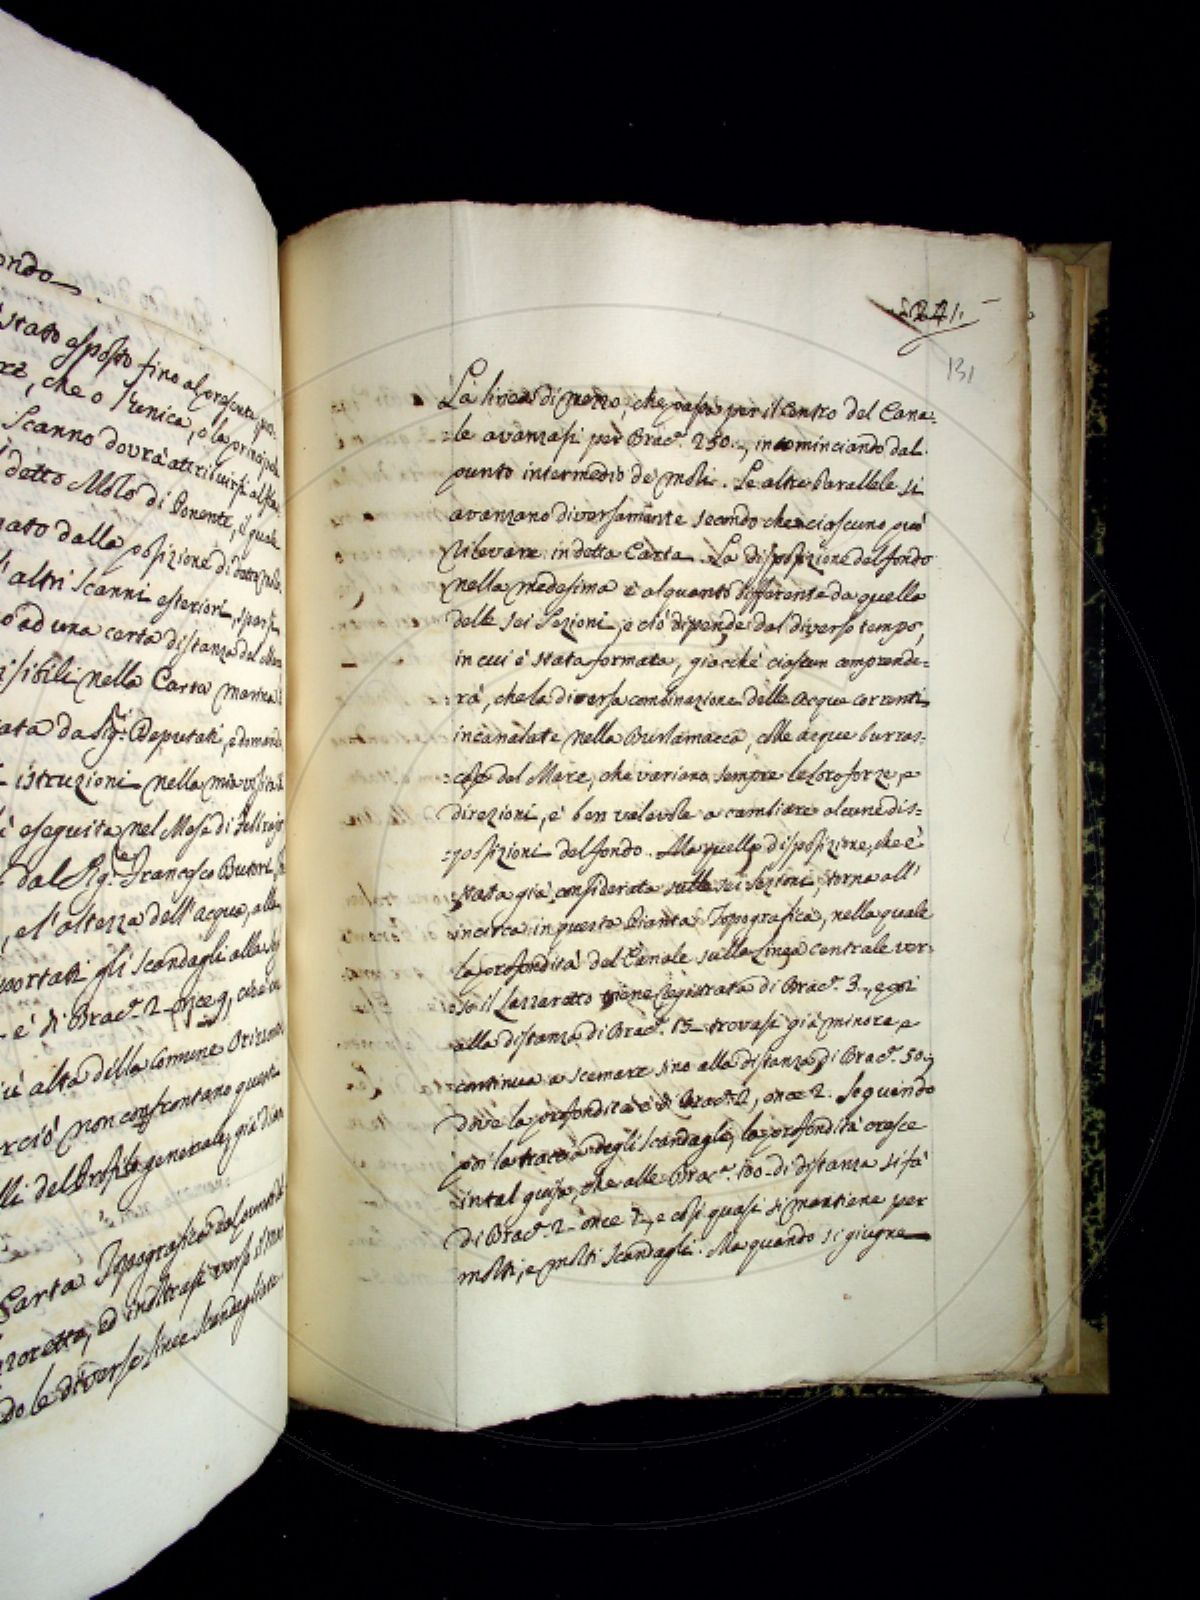 ondo
stato esposto fino al presente, 
che o l'unica, o la principal
Scanno dovrà attribuirsi al
detto Molo di Ponente, il quale
nato dalla posizione di detto
altri Scanni esteriori, sparsi
ad una certa distanza del Mare
isibili nella Carta marina
ata da Sig.ri Deputati, e
istruzioni nella mia visita
eseguita nel Mese di Febbrajo
dal Sig.re Francesco Butori,
e l'altezza dell'acqua, alla
portati gli scandagli alla
è di Brac.a 2 once 9, cioè
più alta della Comune Orizont
perciò non confrontano queste
lli del Profilo generale, già
Carta Topografica dal punto
zzaretto, ed inoltrasi verso il
do le diverse linee scandagliate
241.
131
La linea di mezzo, che passa per il Centro del Cana-
le avanzasi per Brac.a 250., incominciando dal
punto intermedio de' moli. Le altre Parallele si
avanzano diversamente secondo che ciascuno può
rilevare in detta Carta. La disposizione del fondo
nella medesima è alquanto differente da quella
delle sei Sezioni, e ciò dipende dal diverso tempo,
in cui è stata formata, giacchè ciascun comprende-
rà, che la diversa combinazione delle Acque correnti
incanalate nella Burlamacca, colle acque burras-
cose del Mare, che variano sempre le loro forze, e
direzioni, è ben valevole a cambiare alcune dis-
posizioni del fondo. Ma quella disposizione, che è
stata già considerata sulle sei Sezioni torna all'
incirca in questa Pianta Topografica, nella quale
la profondità del Canale sulla Linea centrale ver-
so il Lazzaretto viene registrata di Brac.a 3., e poi
alla distanza di Brac.a 15 trovasi già minore, e
continua a scemare sino alla distanza di Brac.a 50.,
dove la profondità è di Brac.a 2, once 2. Seguendo
poi la traccia degli scandagli, la profondità cresce
in tal guisa, che alle Brac.a 100 di distanza si fà
di Brac.a 2 once 7, e così quasi si mantiene per
molti, e molti Scandagli. Ma quando si giugne